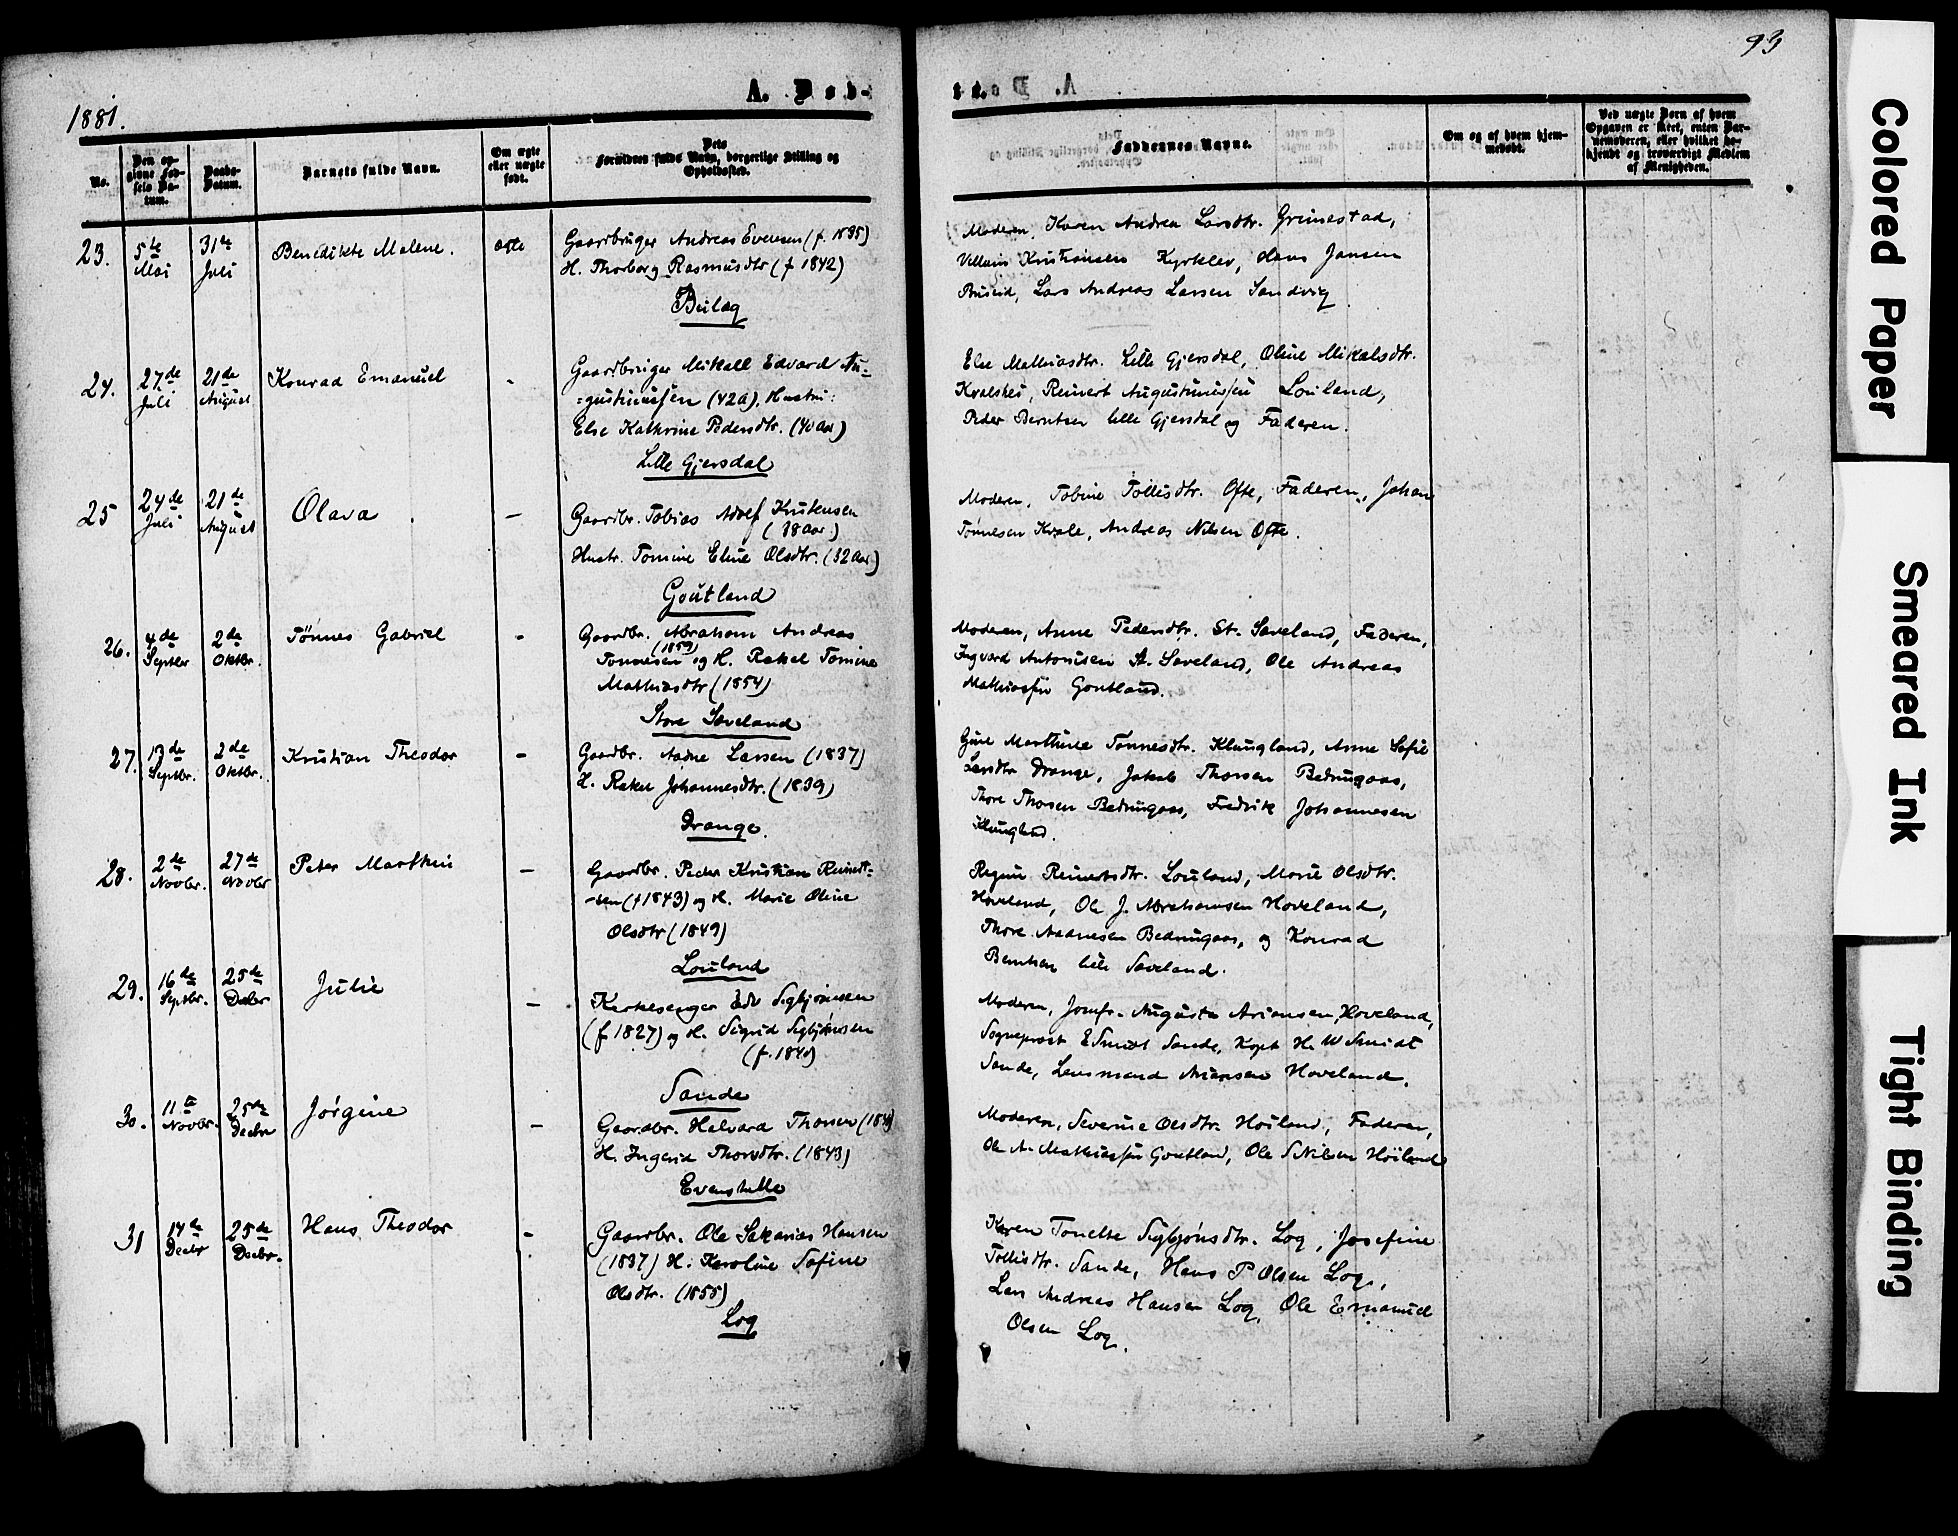 1881.
A. Døb-
te.
93
No.
Den opgivne Fødsels Datum.
Daabs-Datum.
Barnets fulde Navn.
Om ægte eller uægte født.
Dets Forældres fulde Navn, borgerlige Stilling og Opholdssted.
Faddernes Navne.
Om og af hvem hjemmedøbt.
Ved uægte Børn af hvem Opgaven er skeet, enten Barnemoderen, eller hvilket bekjendt og troværdigt Medlem af Menigheden.
23. 5te Mai 31te Juli Benedikte Malene. ægte
Gaardbruger Andreas Evensen (f. 1835)
H. Thorborg Rasmusdtr (f 1842)
Moderen, Karen Andrea Larsdtr. Grimestad,
Kristiansen Kyrklev, Hans Jansen
Lars Andreas Larsen Sandvig
24. 27de Juli 21de August Konrad Emanuel -
Gaardbruger Mikall Edvard Au-
=gustinussen (42 A), Hustru:
Else Kathrine Pedersdtr. (40 Aar)
Lille Gjersdal
Else Mathiasdtr. Lille Gjersdal, Oline Mikalsdtr.
Reinert Augustinussen Louland,
Peder Berntsen lille Gjersdal og Faderen.
25 24de Juli 21de August Olava -
Gaardbr. Tobias Adolf Kristensen
(38 Aar)
Hustr. Tomine Eline Olsdtr. (32 Aar)
Goutland
Moderen, Tobine Tollisdtr. Ofte, Faderen, Johan
Tønnesen Kvale, Andreas Nilsen Ofte.
26. 4de Septbr 2de Oktbr. Tønnes Gabriel -
Gaardbr. Abraham Andreas
(1859)
Tønnesen og H. Rakel Tomine
Mathiasdtr (1854)
Store Sæveland
Moderen, Anne Pedersdtr. St. Sæveland, Faderen,
Ingvard Antonisen St. Sæveland, Ole Andreas
Mathiassen Goutland.
27. 13de Septbr. 2de Oktbr. Kristian Theodor -
Gaardbr. Aadne Larsen (1837)
H. Rakel Johannesdtr. (1839)
Drange.
Marthine Tønnesdtr. Klungland, Anne Sofie
Larsdtr Drange, Jakob Thorsen Bedringaas,
Thore Thorsen Bedringaas, Fredrik Johannesen
Klungland.
28. 2de Novbr. 27de Novbr Peter Marthin -
Gaardbr. Peder Kristian Reinert-
-sen (f 1843) og H. Marie Oline
Olsdtr (1849)
Louland
Regine Reinertsdtr. Louland, Marie Olsdtr.
Hoveland, Ole J. Abrahamsen Hoveland,
Thore Aadnesen Bedringaas, og Konrad
Berntsen lille Sæveland.
29. 16de Septbr. 25de Decbr Julie -
Kirkesanger Edv Sigbjørnsen
(f 1827) og H. Sigrid Sigbjørnsen
(f. 1840)
Sande
Moderen, Jomfr. Augusta Ariansen, Hoveland,
Sogneprest E Smidt Sande, Kapt H. W Smidt
Sande, Lensmand Ariansen Hoveland.
30. 11te Novbr. 25de Decbr Jørgine -
Gaardbr. Halvard Thorsen
H. Ingerid Thorsdtr. (1843)
Evenstelle
Moderen, Severine Olsdtr. Høiland, Faderen,
Ole A. Mathiassen Goutland, Ole S Nilsen Høiland
31 14de Decbr 25de Decbr. Hans Theodor -
Gaardbr. Ole Sakarias Hansen
(1837) H: Karoline Sofine
Olsdtr. (1855)
Log
Karen Tonette Sigbjørnsdtr. Log, Josefine
Tollisdtr. Sande, Hans P Olsen Log,
Lars Andreas Hansen Log, Ole Emanuel
Olsen Log.
Colored Paper
Smeared Ink
Tight Binding